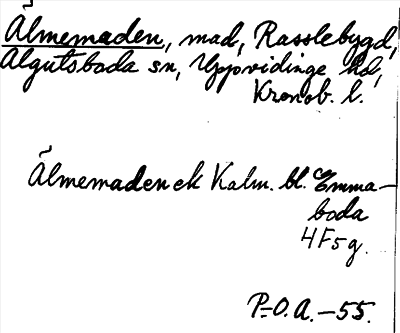 Älmemaden, mad, Rasslebygd,
Algutsboda sn, Uppvidinge hd,
Kronob. l.
Älmemaden ek Kalm. bl. Emma-
boda
4F5g.
P-O.A.-55.